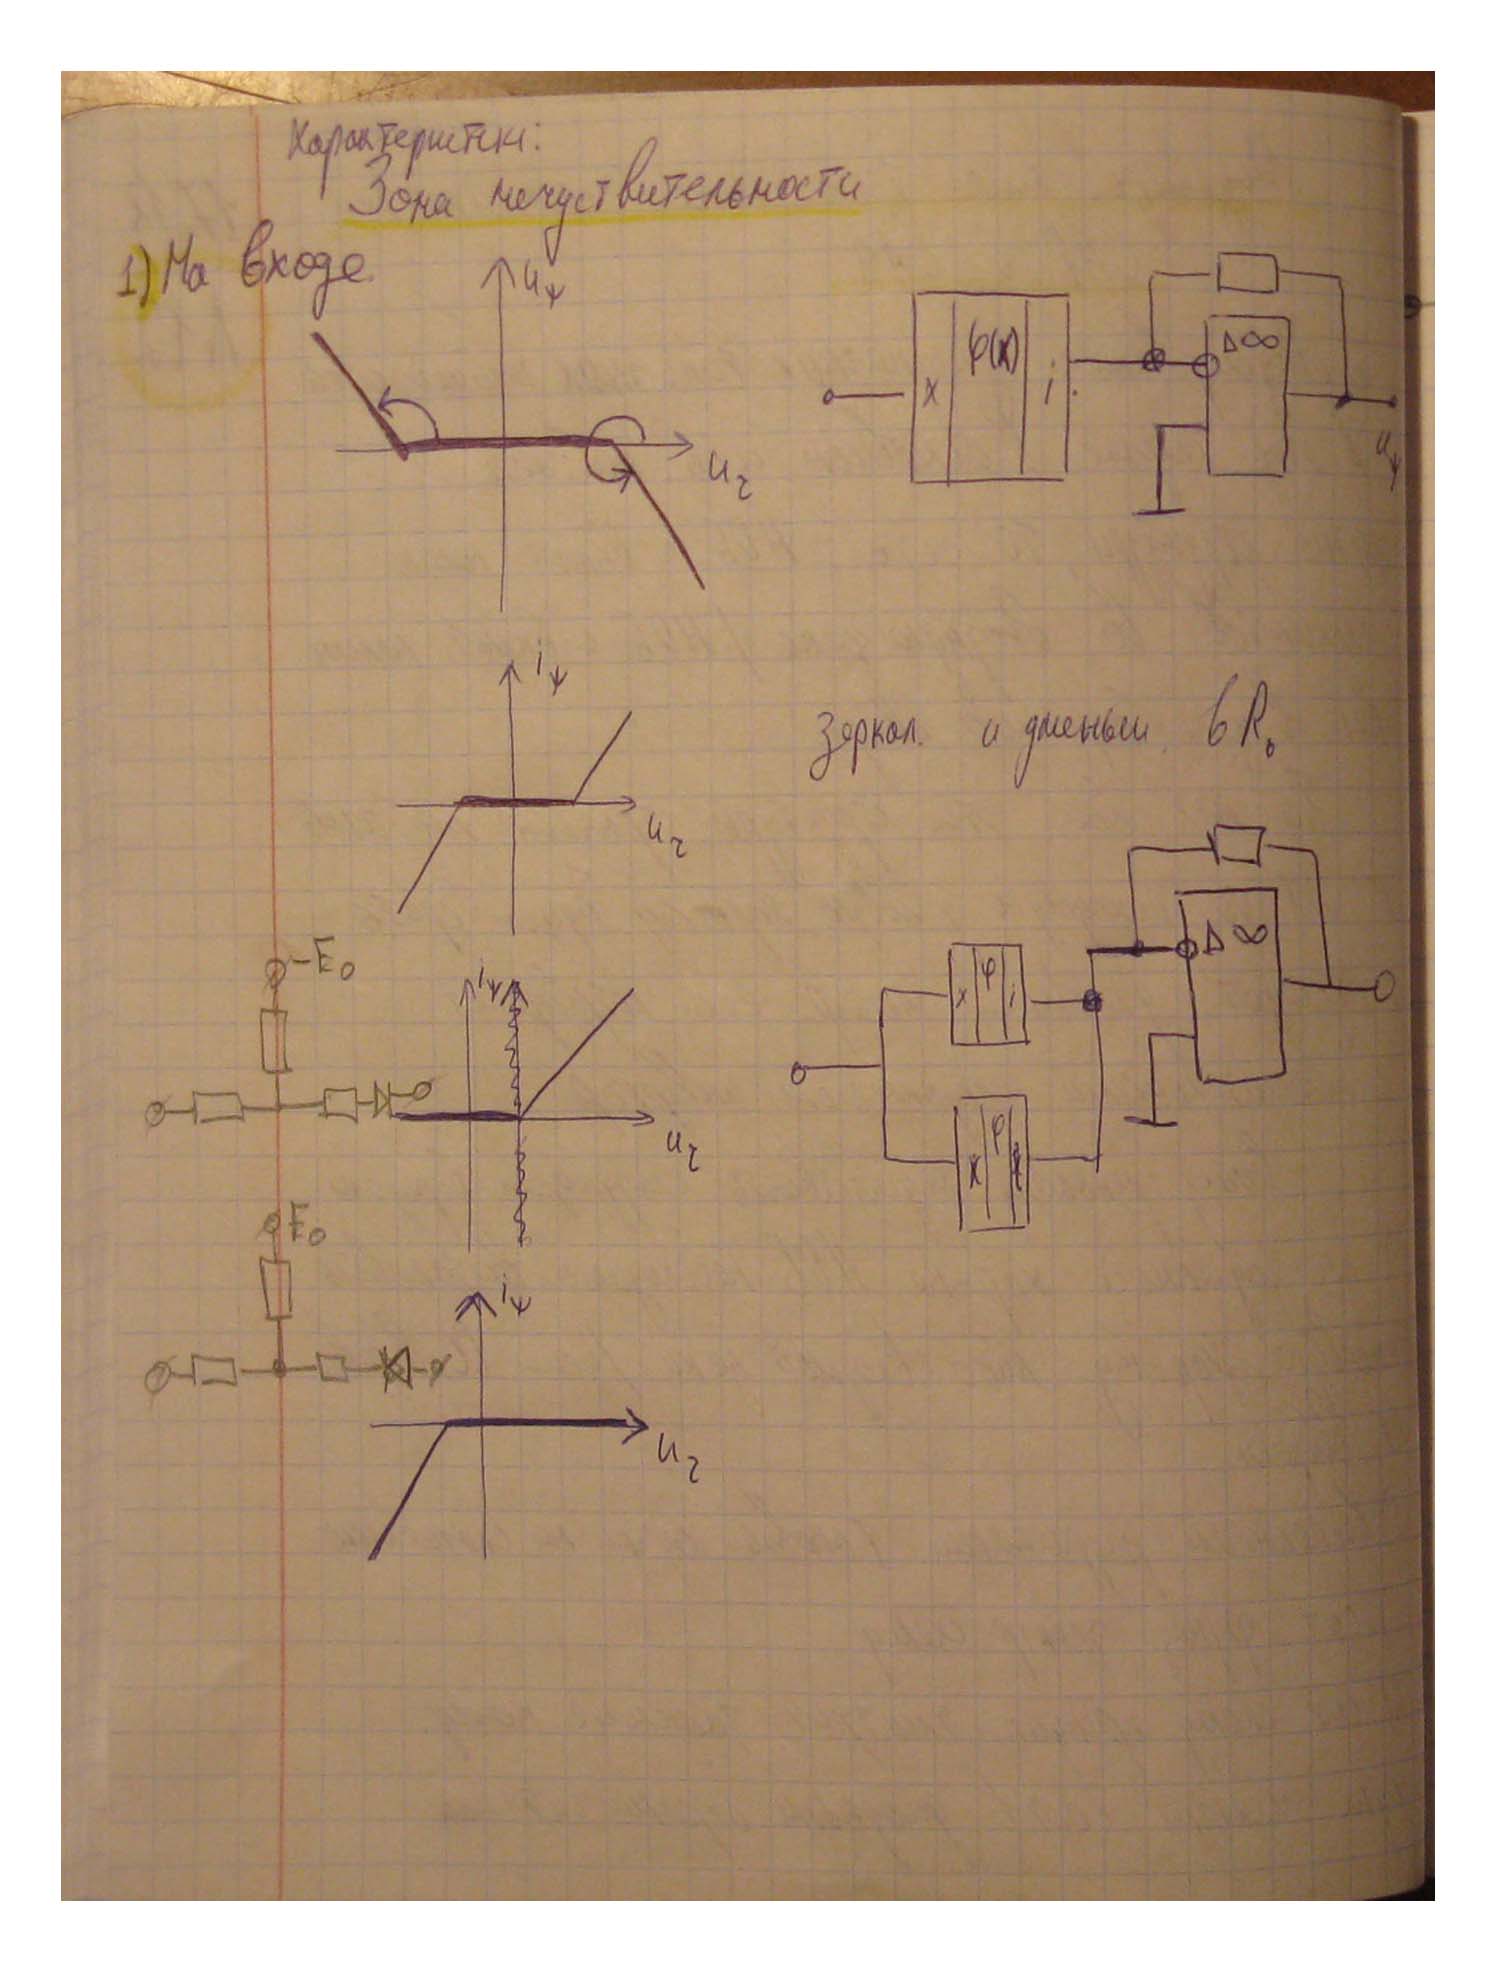 Характеристики:
Зона нечуствительности
1) На входе
uψ
uτ
x φ(x) i
▷ ∞
uψ
iψ
uτ
зеркал. и уменьш. в R₀
▷ ∞
x φ i
x φ
-E₀
iψ
uτ
E₀
iψ
uτ